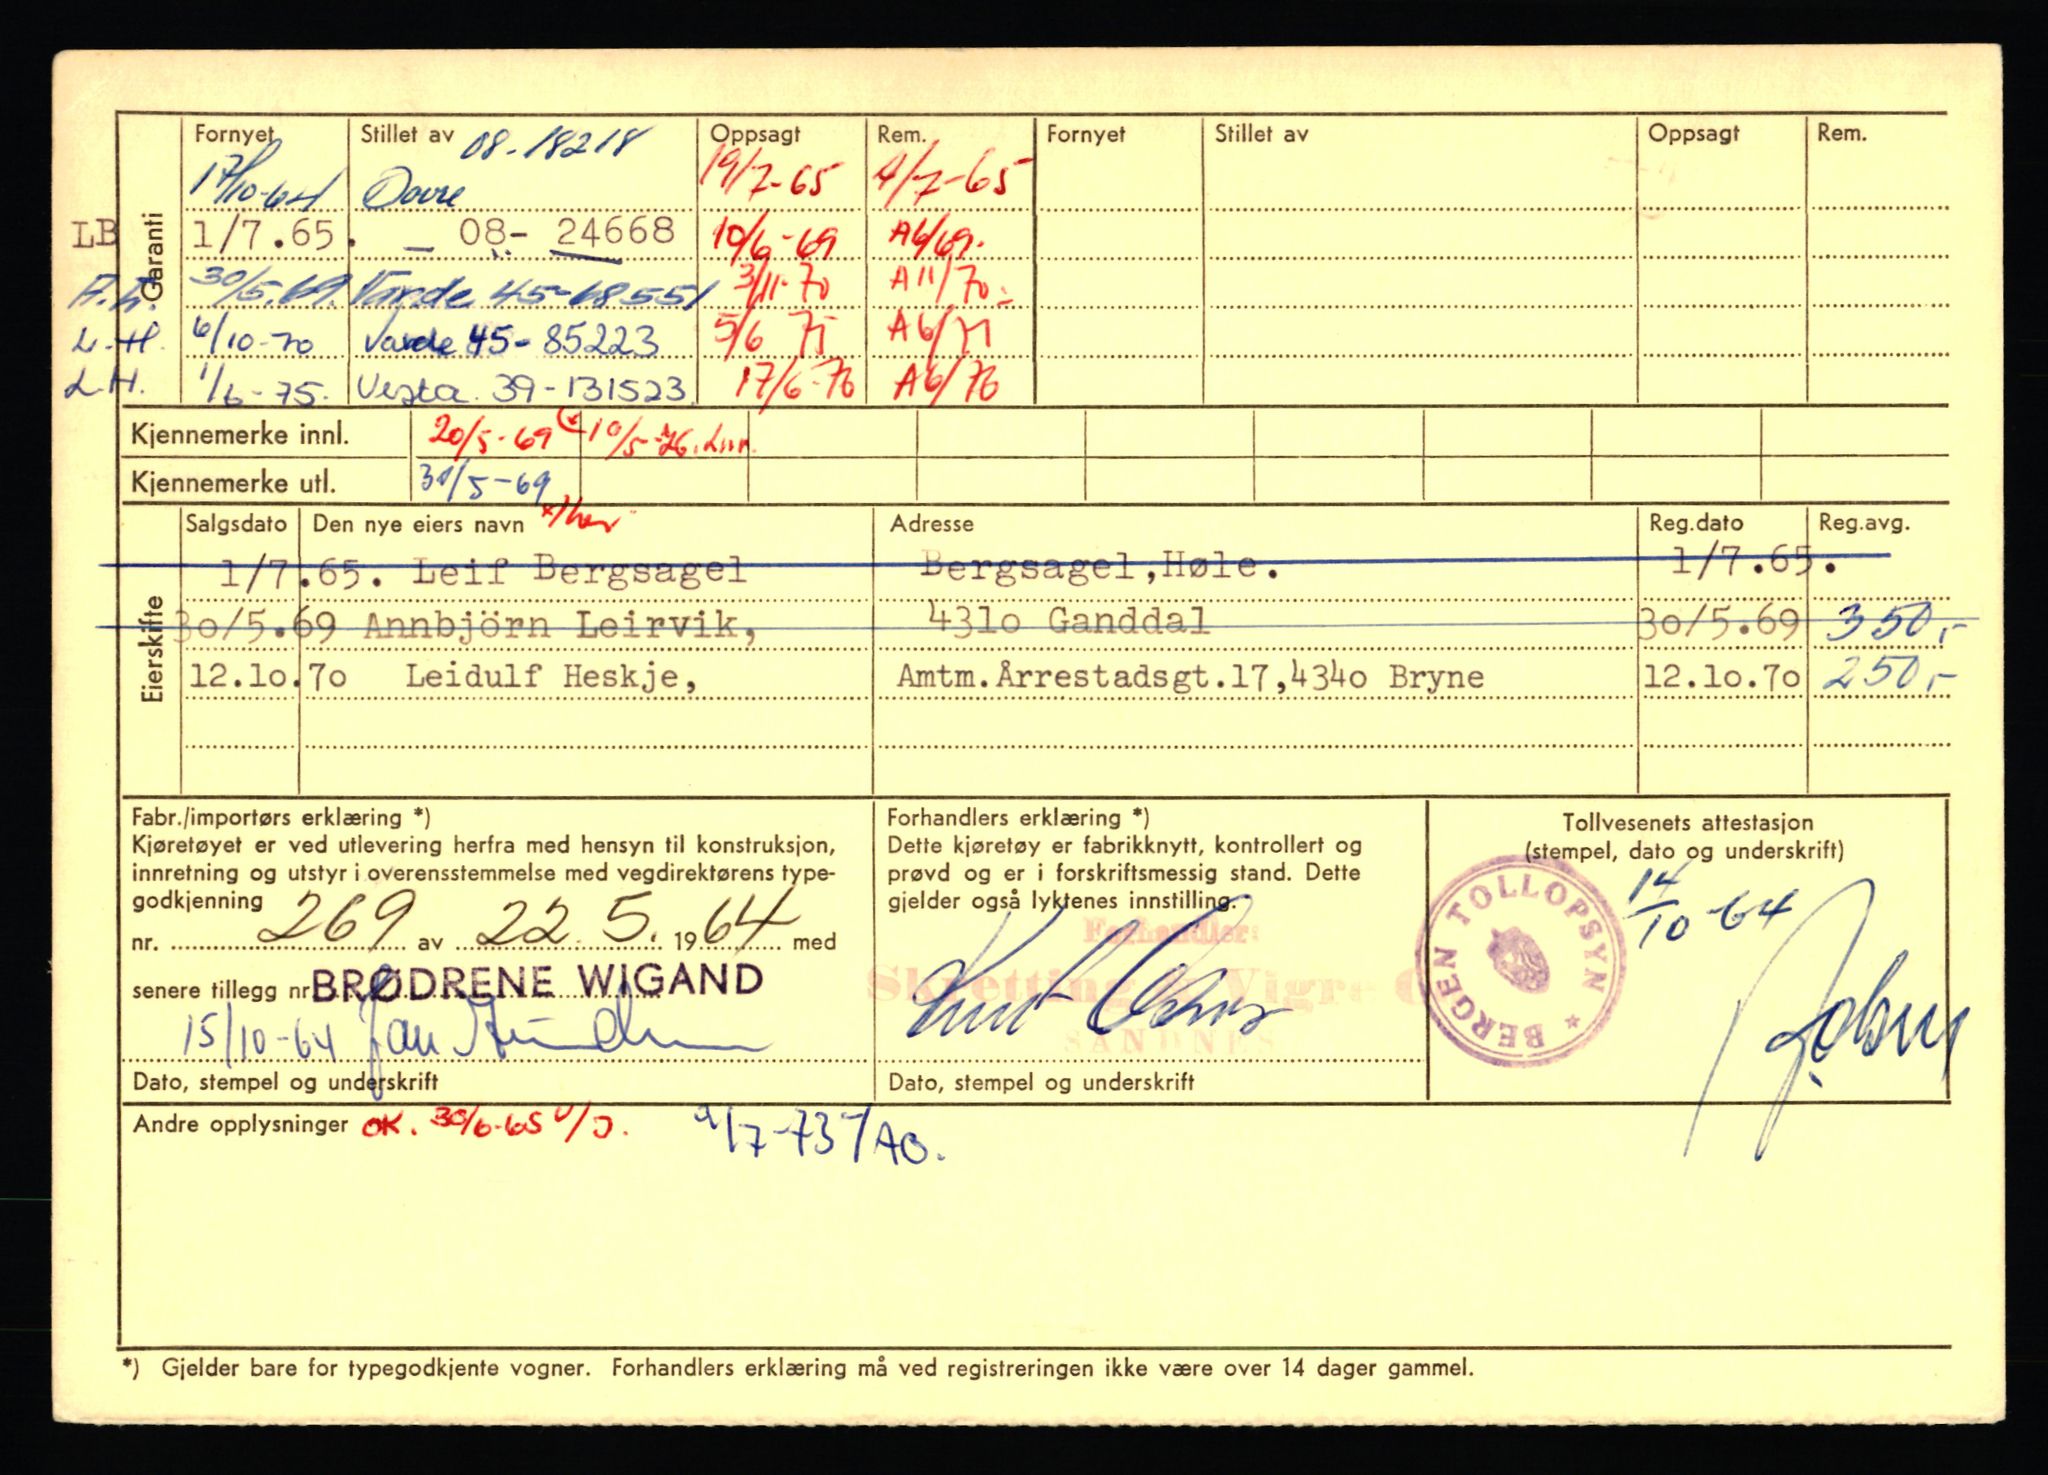 Fornyet Stillet av 08-18218 Oppsagt Rem. Fornyet Stillet av Oppsagt Rem.
Garanti
17/10-64 Dovre 19/7-65 4/7-65
LB 1/7.65. — 08- 24668 10/6-69 A6/69.
30/5.69. Varde 45-68551 3/11-70 A11/70.
L.H. 6/10-70 Varde 45-85223 5/6 75
L.H. 1/6-75. Vesta. 39-131523 17/6-76 A6/76
Kjennemerke innl. 20/5-69 10/5-76.
Kjennemerke utl. 30/5-69
Eierskifte
Salgsdato Den nye eiers navn Adresse Reg.dato Reg.avg.
1/7.65. Leif Bergsagel Bergsagel,Høle. 1/7.65.
30/5.69 Annbjörn Leirvik, 4310 Ganddal 30/5.69 350,-
12.10.70 Leidulf Heskje, Amtm.Årrestadsgt.17,4340 Bryne 12.10.70 250,-
Fabr./importørs erklæring *)
Kjøretøyet er ved utlevering herfra med hensyn til konstruksjon,
innretning og utstyr i overensstemmelse med vegdirektørens type-
godkjenning
nr. 269 av 22.5. 1964 med
senere tillegg nr BRØDRENE WIGAND
15/10-64 Jan
Dato, stempel og underskrift
Forhandlers erklæring *)
Dette kjøretøy er fabrikknytt, kontrollert og
prøvd og er i forskriftsmessig stand. Dette
gjelder også lyktenes innstilling.
Forhandler:
Skretting Vigre
SANDNES
Dato, stempel og underskrift
Tollvesenets attestasjon
(stempel, dato og underskrift)
14/10-64
BERGEN TOLLOPSYN
Andre opplysninger OK. 30/6-65 /7-73 AB.
*) Gjelder bare for typegodkjente vogner. Forhandlers erklæring må ved registreringen ikke være over 14 dager gammel.